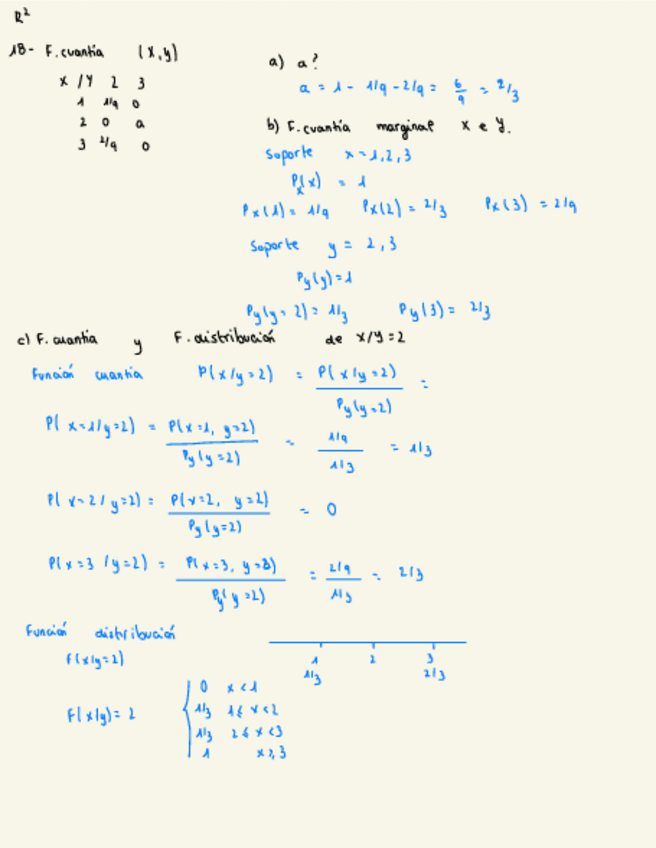 R²
18- F. cuantía (X,y)
X / Y 2 3
1 1/9 0
2 0 a
3 2/9 0
a) a?
a = 1 - 1/9 - 2/9 = 6/9 = 2/3
b) F. cuantía marginal X e Y.
Soporte x = 1, 2, 3
Px(x) = 1
Px(1) = 1/9 Px(2) = 2/3 Px(3) = 2/9
Soporte y = 2, 3
Py(y) = 1
Py(y = 2) = 1/3 Py(3) = 2/3
c) F. cuantía y F. distribución de x/Y=2
Función cuantía P(x/y=2) = P(x/y=2) / Py(y=2) =
P(x=1/y=2) = P(x=1, y=2) / Py(y=2) = 1/9 / 1/3 = 1/3
P(x=2/y=2) = P(x=2, y=2) / Py(y=2) = 0
P(x=3/y=2) = P(x=3, y=3) / Py(y=2) = 2/9 / 1/3 = 2/3
Función distribución
F(x/y=2)
1 2 3
1/3 2/3
F(x/y) = 2
0 x < 1
1/3 1 ≤ x < 2
1/3 2 ≤ x < 3
1 x ≥ 3